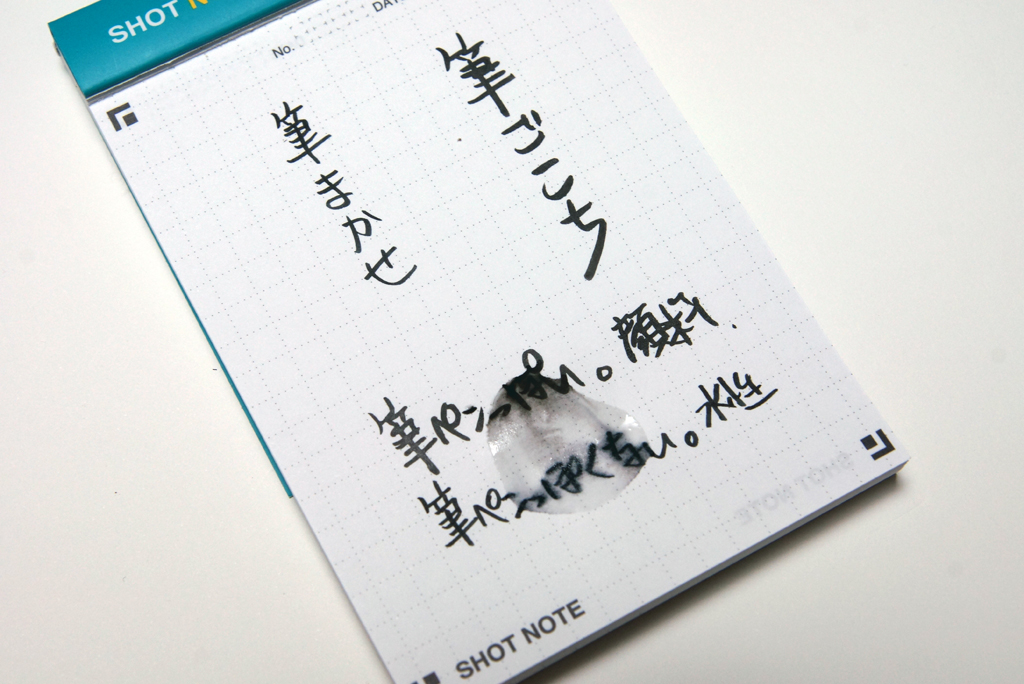 SHOT N
No.
DAT
筆ごこち
筆まかせ
筆ペンっぽい。顔料
筆ペンっぽくない。水性
SHOT NOTE
SHOT NOTE